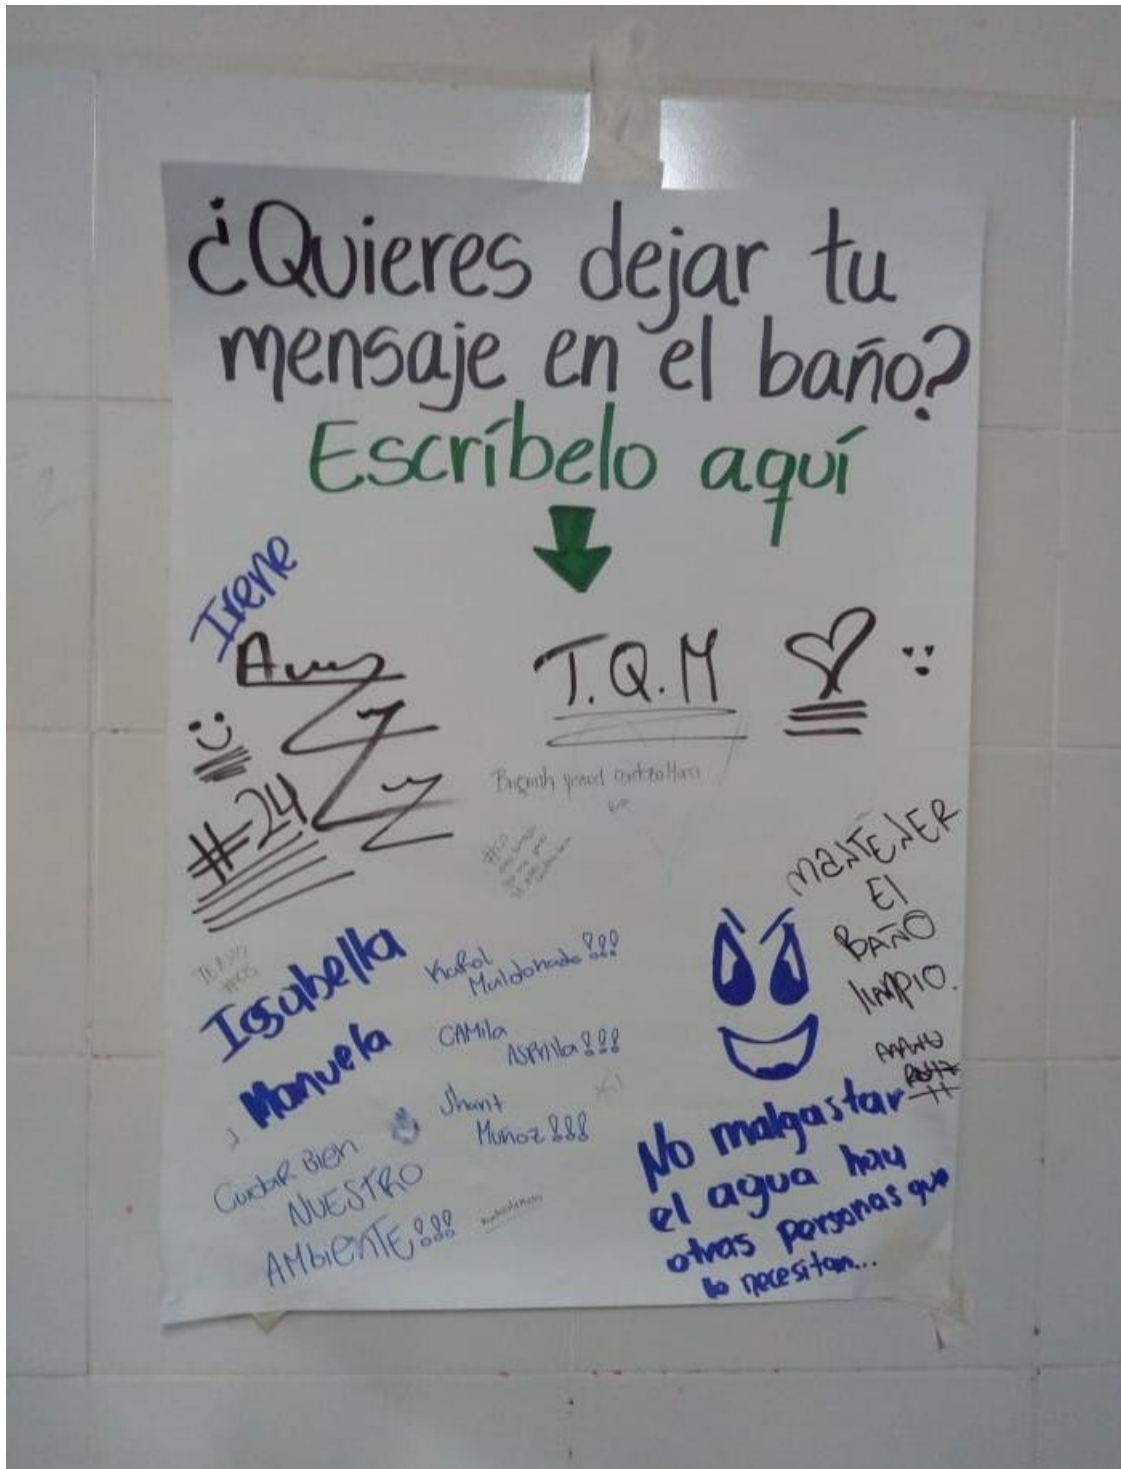 ¿Quieres dejar tu
mensaje en el baño?
Escríbelo aquí
Irene
T.Q.M
#24
MANTENER
El
BAÑO
limPIO.
Isabella
Karol
Maldonado!!!
Manuela
CAMila
ASPrilla!!!
Jhant
Muñoz!!!
CuidaR Bien
NUESTRO
AMbiENTE!!!
No malgastar
el agua hay
otras personas que
lo necesitan...